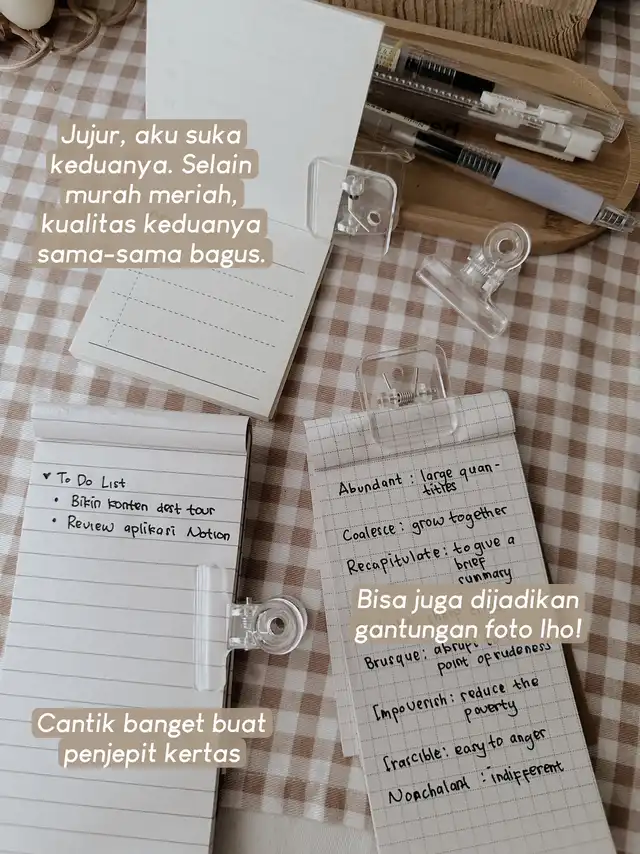 Jujur, aku suka
keduanya. Selain
murah meriah,
kualitas keduanya
sama-sama bagus.
♥ To Do List
• Bikin konten desk tour
• Review aplikasi Notion
Cantik banget buat
penjepit kertas
Abundant : large quan-
tities
Coalesce : grow together
Recapitulate : to give a
brief
summary
Bisa juga dijadikan
gantungan foto lho!
Brusque : abrupt
point of rudeness
Impoverish : reduce the
poverty
Irascible : easy to anger
Nonchalant : indifferent